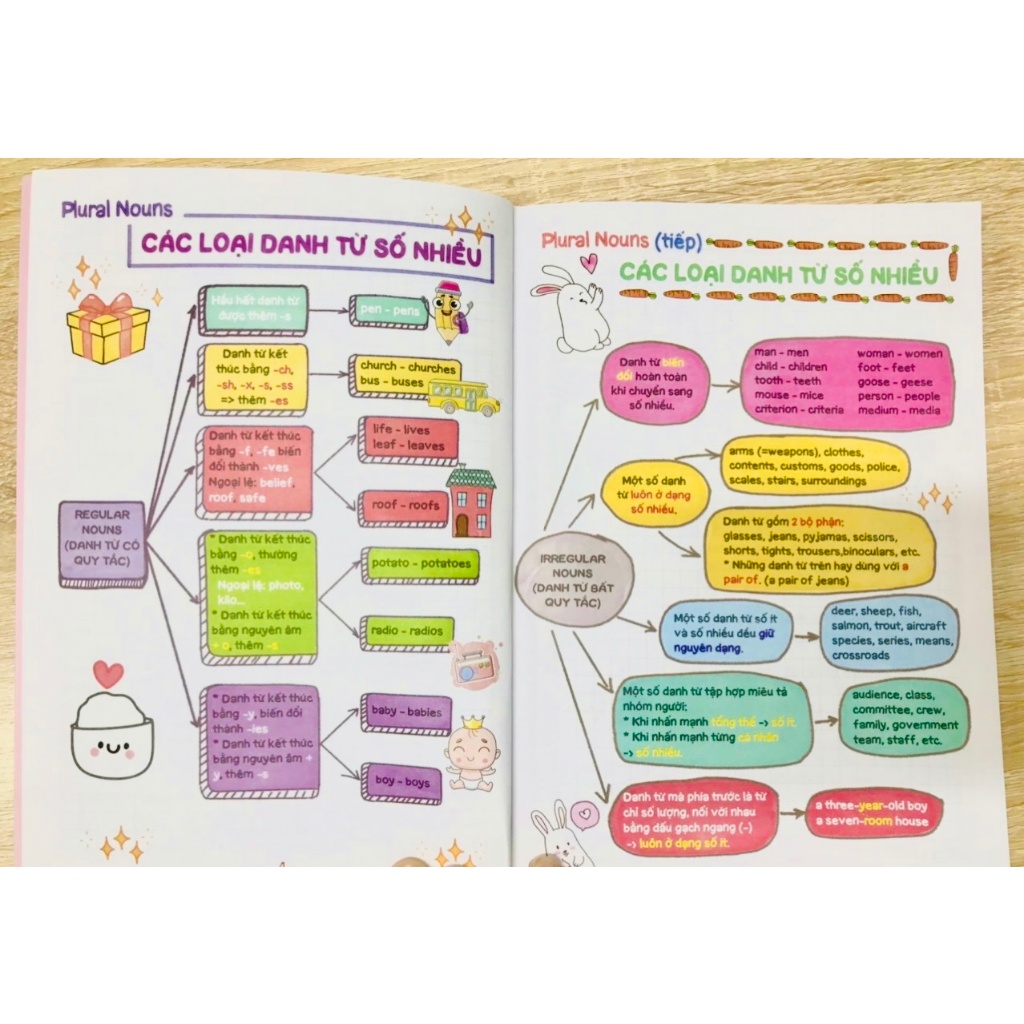 Plural Nouns
CÁC LOẠI DANH TỪ SỐ NHIỀU
REGULAR
NOUNS
(DANH TỪ CÓ
QUY TẮC)
Hầu hết danh từ
được thêm -s
pen - pens
Danh từ kết
thúc bằng -ch,
-sh, -x, -s, -ss
=> thêm -es
church - churches
bus - buses
Danh từ kết thúc
bằng -f, -fe biến
đổi thành -ves
Ngoại lệ: belief,
roof, safe
life - lives
leaf - leaves
roof - roofs
* Danh từ kết thúc
bằng -o, thường
thêm -es
Ngoại lệ: photo,
kilo...
* Danh từ kết thúc
bằng nguyên âm
+ o, thêm -s
potato - potatoes
radio - radios
* Danh từ kết thúc
bằng -y, biến đổi
thành -ies
* Danh từ kết thúc
bằng nguyên âm +
y, thêm -s
baby - babies
boy - boys
Plural Nouns (tiếp)
CÁC LOẠI DANH TỪ SỐ NHIỀU
IRREGULAR
NOUNS
(DANH TỪ BẤT
QUY TẮC)
Danh từ biến
đổi hoàn toàn
khi chuyển sang
số nhiều.
man - men
child - children
tooth - teeth
mouse - mice
criterion - criteria
woman - women
foot - feet
goose - geese
person - people
medium - media
Một số danh
từ luôn ở dạng
số nhiều.
arms (=weapons), clothes,
contents, customs, goods, police,
scales, stairs, surroundings
Danh từ gồm 2 bộ phận:
glasses, jeans, pyjamas, scissors,
shorts, tights, trousers,binoculars, etc.
* Những danh từ trên hay dùng với a
pair of. (a pair of jeans)
Một số danh từ số ít
và số nhiều đều giữ
nguyên dạng.
deer, sheep, fish,
salmon, trout, aircraft
species, series, means,
crossroads
Một số danh từ tập hợp miêu tả
nhóm người:
* Khi nhấn mạnh tổng thể -> số ít.
* Khi nhấn mạnh từng cá nhân
-> số nhiều.
audience, class,
committee, crew,
family, government
team, staff, etc.
Danh từ mà phía trước là từ
chỉ số lượng, nối với nhau
bằng dấu gạch ngang (-)
-> luôn ở dạng số ít.
a three-year-old boy
a seven-room house